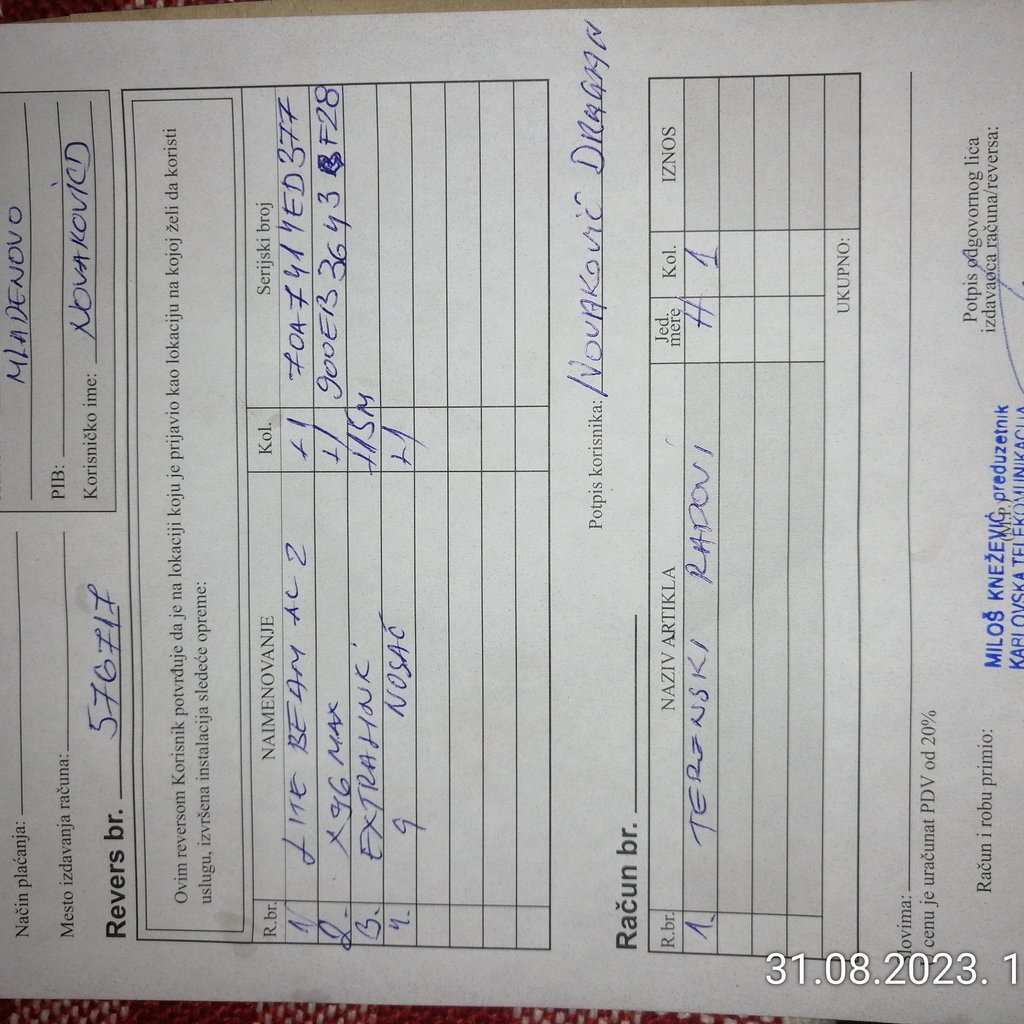 MLADENOVO
PIB:
Korisničko ime: NOVAKOVICD
Način plaćanja:
Mesto izdavanja računa:
Revers br. 576717
Ovim reversom Korisnik potvrđuje da je na lokaciji koju je prijavio kao lokaciju na kojoj želi da koristi
uslugu, izvršena instalacija sledeće opreme:
R.br. NAIMENOVANJE Kol. Serijski broj
1 LITE BEAM AC 2 +1 70A7414ED377
2. X96 MAX +1 900EB3643 F28
3. EXTRALINK +15M
4. 9 NOSAČ +1
Potpis korisnika: NOVAKOVIĆ DRAGAN
Račun br.
R.br. NAZIV ARTIKLA Jed. mere Kol. IZNOS
1. TERENSKI RADOVI H 1
UKUPNO:
lovima:
cenu je uračunat PDV od 20%
Račun i robu primio:
Potpis odgovornog lica
izdavaoca računa/reversa:
(M.P.)
MILOŠ KNEŽEVIĆ preduzetnik
KARLOVSKA TELEKOMUNIKACIJA
31.08.2023. 1